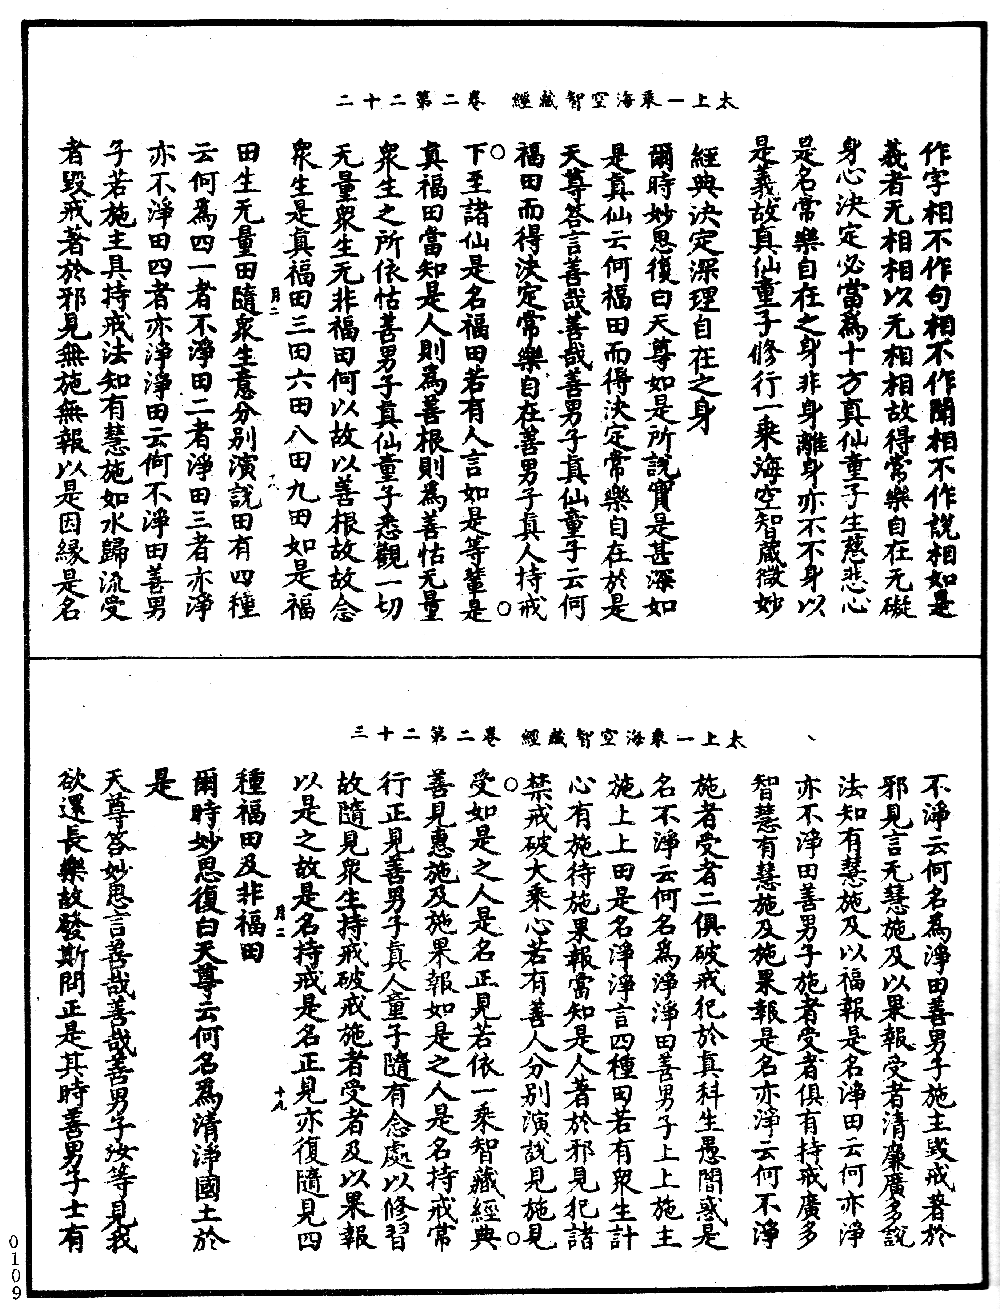 太上一乗海空智藏經　卷二第二十二
作字相不作句相不作聞相不作說相如是
義者无相相以无相相故得常樂自在无礙
身心決定必當為十方真仙童子生慈悲心
是名常樂自在之身非身離身亦不不身以
是義故真仙童子修行一乗海空智藏微妙
經典決定深理自在之身
爾時妙思復白天尊如是所說實是甚深如
是真仙云何福田而得決定常樂自在於是
天尊答言善哉善哉善男子真仙童子云何
福田而得決定常樂自在善男子真人持戒
下至諸仙是名福田若有人言如是等輩是
真福田當知是人則為善根則為善怙无量
衆生之所依怙善男子真仙童子悉觀一切
无量衆生无非福田何以故以善根故故念
衆生是真福田三田六田八田九田如是福
月二
十八
田生无量田隨衆生意分別演說田有四種
云何為四一者不淨田二者淨田三者亦淨
亦不淨田四者亦淨淨田云何不淨田善男
子若施主具持戒法知有慧施如水歸流受
者毀戒著於邪見無施無報以是因緣是名
太上一乗海空智藏經　卷二第二十三
不淨云何名為淨田善男子施主毀戒著於
邪見言无慧施及以果報受者清廉廣多說
法知有慧施及以福報是名淨田云何亦淨
亦不淨田善男子施者受者俱有持戒廣多
智慧有慧施及施果報是名亦淨云何不淨
施者受者二俱破戒犯於真科生愚闇惑是
名不淨云何名為淨淨田善男子上上施主
施上上田是名淨淨言四種田若有衆生計
心有施待施果報當知是人著於邪見犯諸
禁戒破大乘心若有善人分別演說見施見
受如是之人是名正見若依一乘智藏經典
善見惠施及施果報如是之人是名持戒常
行正見善男子真人童子隨有念處以修習
故隨見衆生持戒破戒施者受者及以果報
以是之故是名持戒是名正見亦復隨見四
月二
十九
種福田及非福田
爾時妙思復白天尊云何名為清淨國土於
是
天尊答妙思言善哉善哉善男子汝等見我
欲還長樂故發斯問正是其時善男子士有
0109